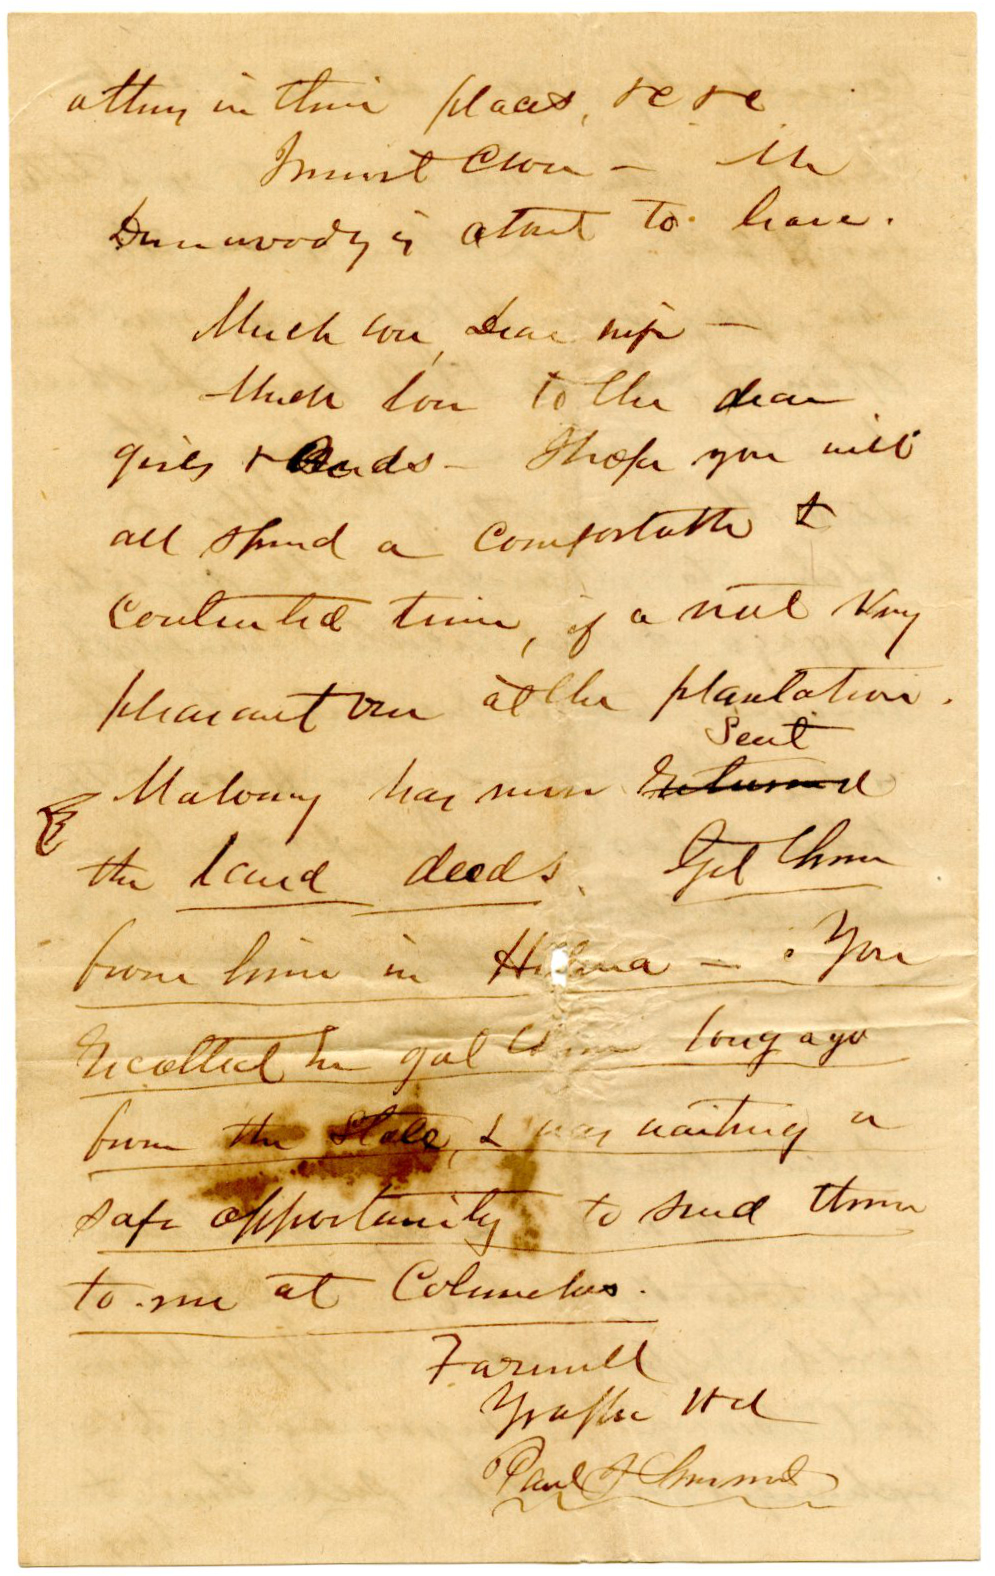 others in their places, &c &c
I must close — Mr
Dunwody is about to leave.
Much love, Dear wife —
Much love to the dear
girls & Buds — I hope you will
all spend a comfortable &
contented time, if a not very
pleasant one at the plantation.
Sent
Maloney has never returned
the land deeds. Get them
from him in — You
recollect he got them long ago
from the State, & was waiting a
safe opportunity to send them
to me at Columbus.
Farewell
Yr affec Hd
Paul J Semmes